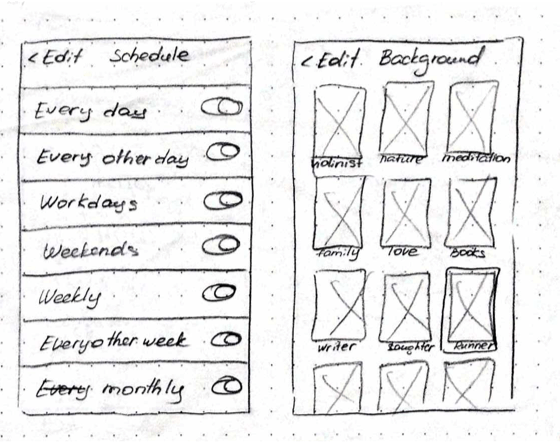 < Edit Schedule
Every day
Every other day
Workdays
Weekends
Weekly
Every other week
Every monthly
< Edit. Background
nature meditation
family love books
writer daughter Runner